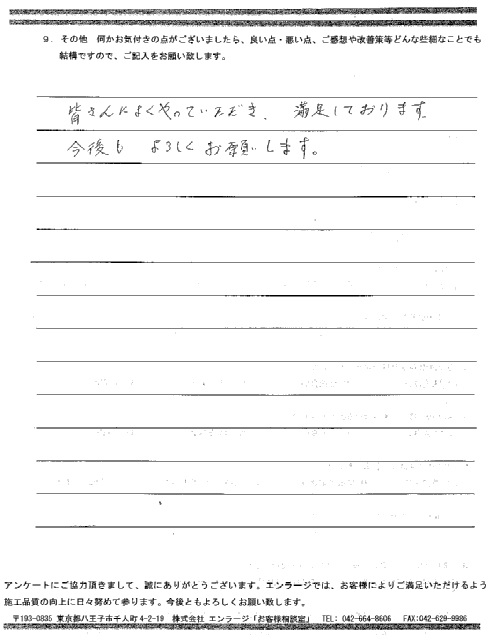 9. その他 何かお気付きの点がございましたら、良い点・悪い点、ご感想や改善策等どんな些細なことでも
結構ですので、ご記入をお願い致します。
皆さんによくやっていただき、満足しております。
今後も よろしくお願いします。
アンケートにご協力頂きまして、誠にありがとうございます。エンラージでは、お客様によりご満足いただけるよう
施工品質の向上に日々努めて参ります。今後ともよろしくお願い致します。
〒193-0835 東京都八王子市千人町4-2-19 株式会社 エンラージ「お客様相談室」 TEL: 042-664-8606 FAX:042-629-9986